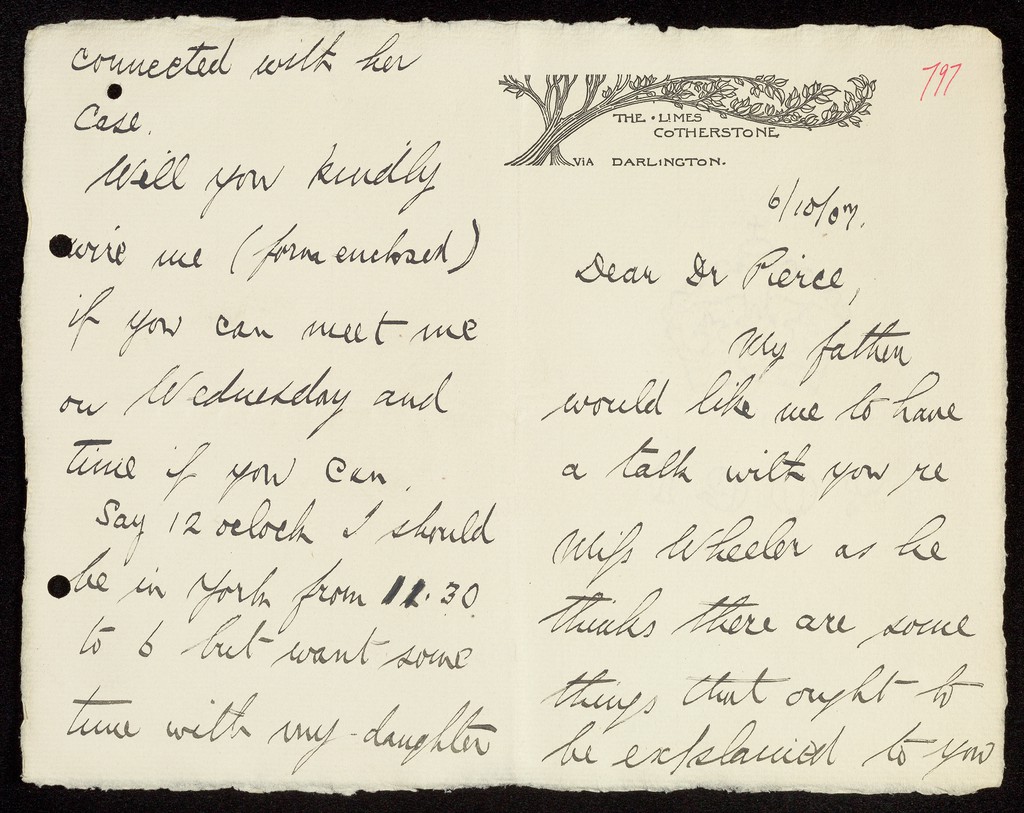 797
THE · LIMES
COTHERSTONE
VIA DARLINGTON.
6/10/07.
Dear Dr Pierce,
My father
would like me to have
a talk with you re
Miss Wheeler as he
thinks there are some
things that ought to
be explained to you
connected with her
case.
Will you kindly
wire me (form enclosed)
if you can meet me
on Wednesday and
time if you can.
Say 12 oclock I should
be in York from 11.30
to 6 but want some
time with my daughter